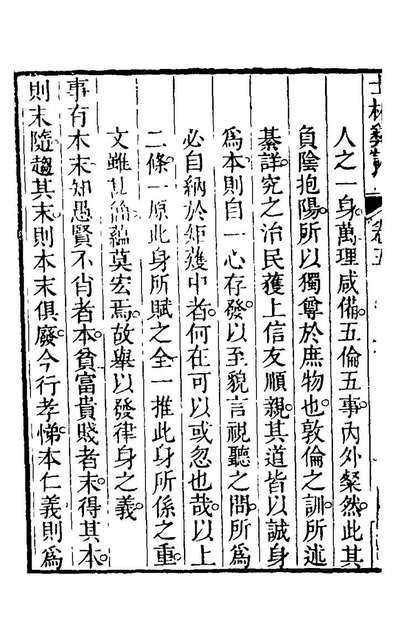 士林彝訓 卷五
人之一身萬理咸備五倫五事內外粲然此其
負陰抱陽所以獨尊於庶物也敦倫之訓所述
綦詳究之治民獲上信友順親其道皆以誠身
爲本則自一心存發以至貌言視聽之間所爲
必自納於矩矱中者何在可以或忽也哉以上
二條一原此身所賦之全一推此身所係之重
文雖甚簡蘊莫宏焉故舉以發律身之義
事有本末知愚賢不肖者本貧富貴賤者末得其本
則末隨趨其末則本末俱廢今行孝悌本仁義則爲